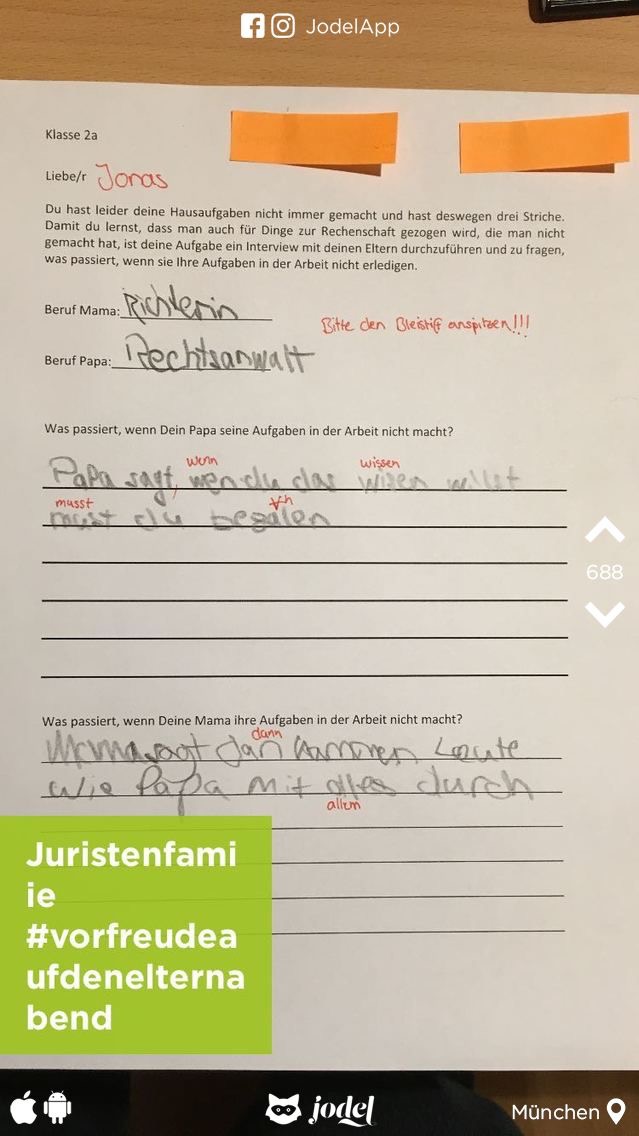 JodelApp
Klasse 2a
Liebe/r Jonas
Du hast leider deine Hausaufgaben nicht immer gemacht und hast deswegen drei Striche.
Damit du lernst, dass man auch für Dinge zur Rechenschaft gezogen wird, die man nicht
gemacht hat, ist deine Aufgabe ein Interview mit deinen Eltern durchzuführen und zu fragen,
was passiert, wenn sie Ihre Aufgaben in der Arbeit nicht erledigen.
Beruf Mama: Richterin
Bitte den Bleistift anspitzen!!!
Beruf Papa: Rechtsanwalt
Was passiert, wenn Dein Papa seine Aufgaben in der Arbeit nicht macht?
wenn wissen
Papa sagt, wen du das wisen willst
musst h
must du bezalen
688
Was passiert, wenn Deine Mama ihre Aufgaben in der Arbeit nicht macht?
dann
Mama sagt dan kommen Leute
wie Papa mit alles durch
allem
Juristenfami
ie
#vorfreudea
ufdenelterna
bend
jodel
München